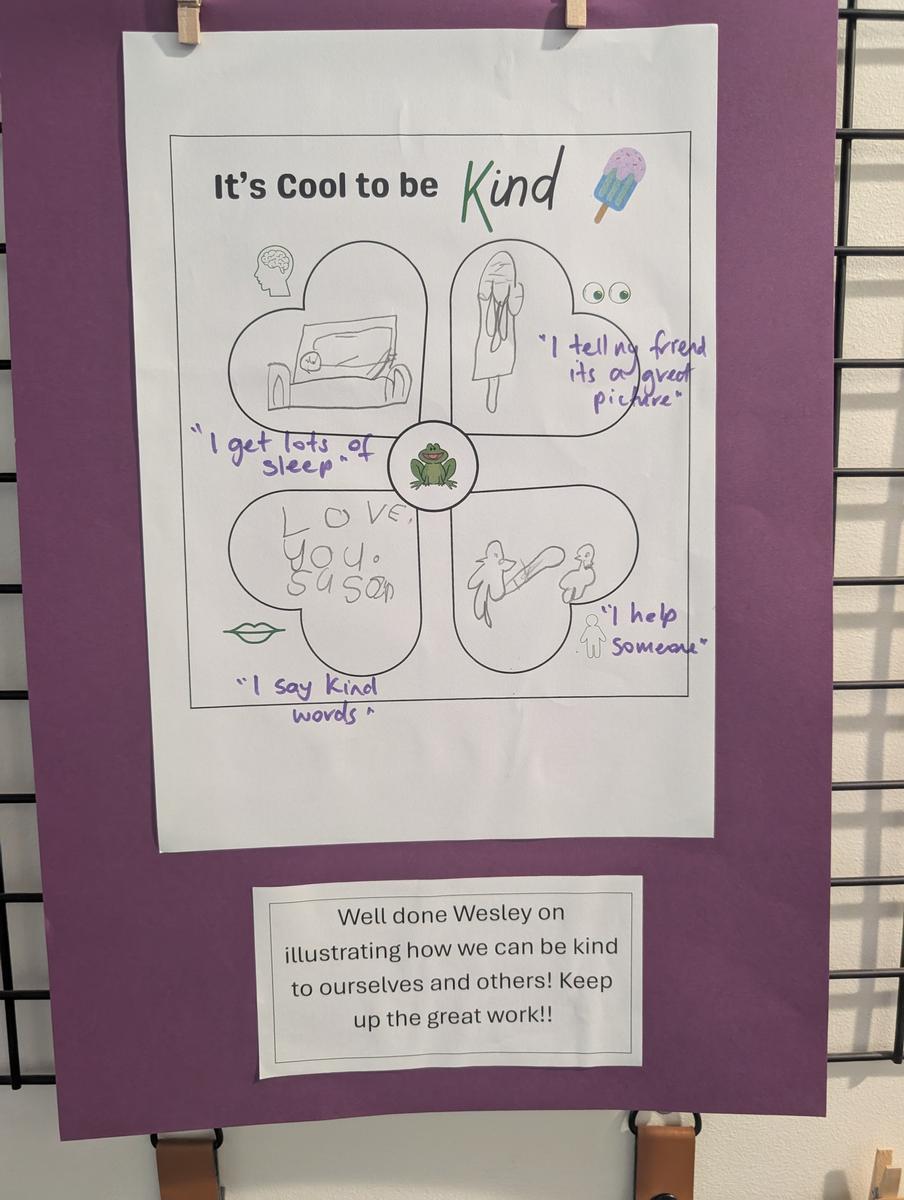 It's Cool to be Kind
"I tell my friend
its a great
picture"
"I get lots of
sleep"
LOVE.
you.
Sason
"I help
someone"
"I say kind
words"
Well done Wesley on
illustrating how we can be kind
to ourselves and others! Keep
up the great work!!